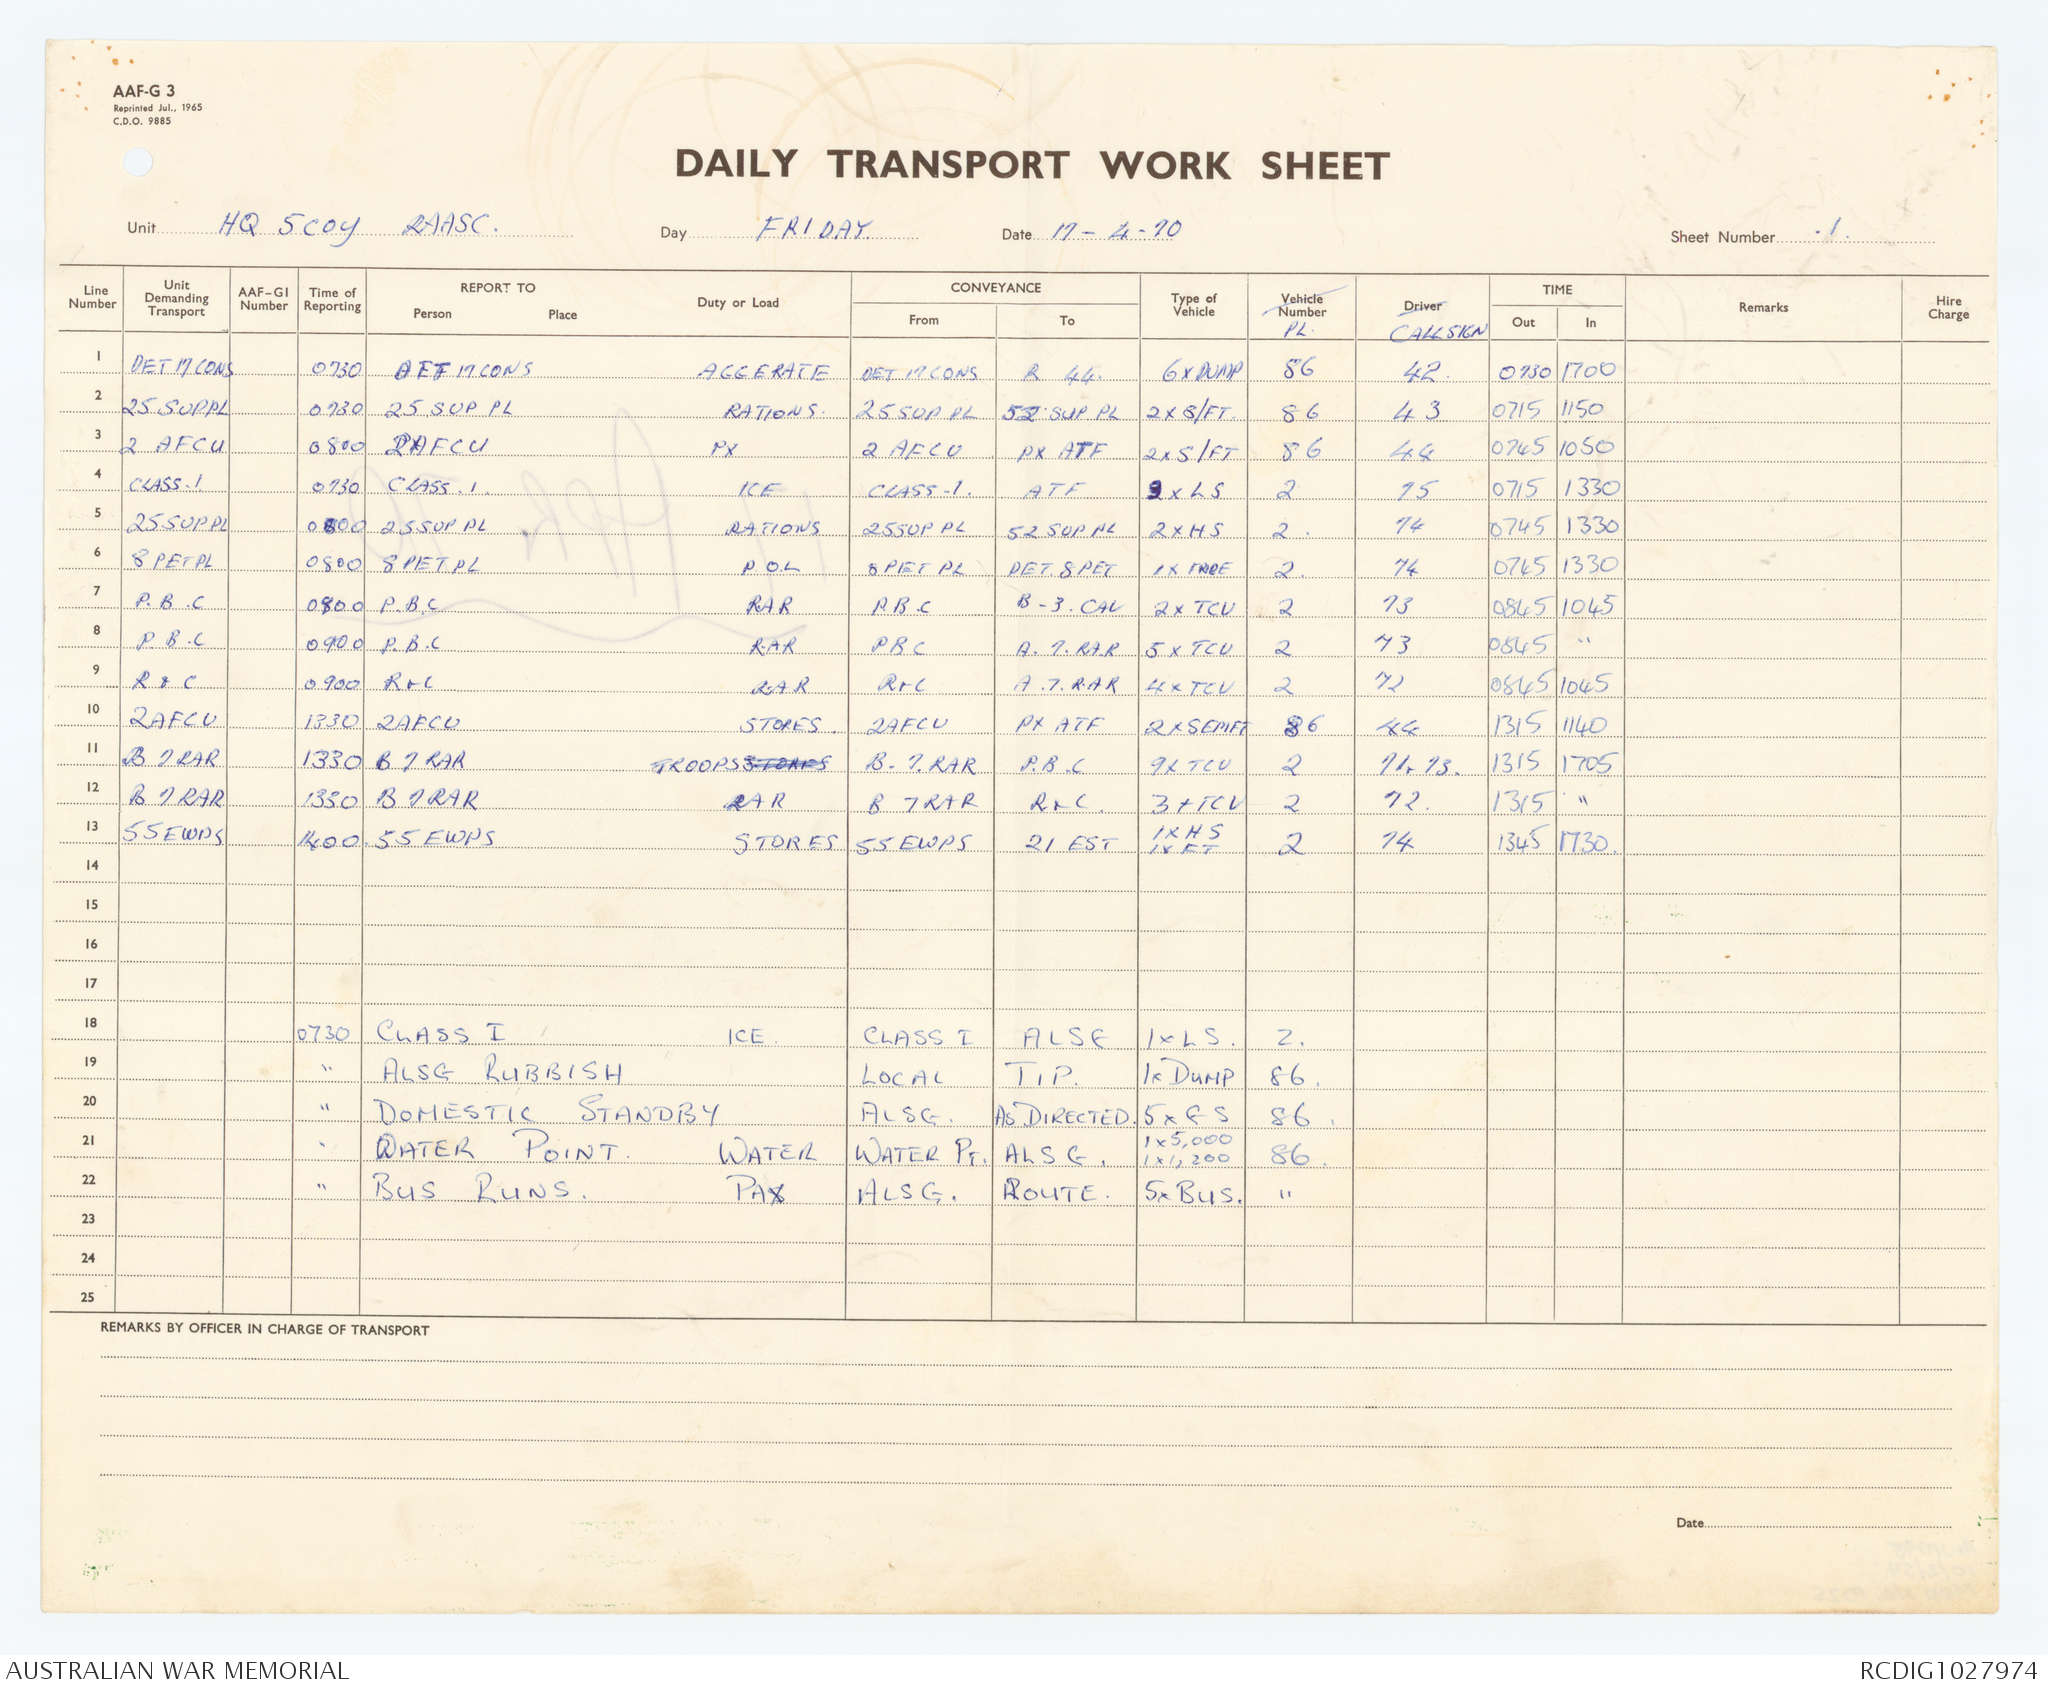 AAF-G 3
Reprinted Jul., 1965
C.D.O. 9885
DAILY TRANSPORT WORK SHEET
Unit HQ 5COY RAASC. Day FRIDAY. Date 17-4-70 Sheet Number .1.
Line Number Unit Demanding Transport AAF-G1 Number Time of Reporting REPORT TO Person Place Duty or Load CONVEYANCE From To Type of Vehicle Vehicle Number PL. Driver CALLSIGN TIME Out In Remarks Hire Charge
1 DET 17 CONS 0730 17 CONS AGGERATE DET 17 CONS R 44. 6xDUMP 86 42. 0730 1700
2 25 SUPPL 0730 25 SUP PL RATIONS. 25 SUP PL 52 SUP PL 2xS/FT. 86 43 0715 1150
3 2 AFCU 0800 2AFCU PX 2 AFCU PX ATF 2xS/FT 86 44 0745 1050
4 CLASS.1 0730 CLASS.1. ICE CLASS-1. ATF xLS 2 75 0715 1330
5 25SUPPL 0800 25SUP PL RATIONS 25SUP PL 52 SUP PL 2xHS 2. 74 0745 1330
6 8 PET PL 0800 8 PET PL P.O.L 8 PET PL DET. 8 PET 1x 2. 74 0745 1330
7 P.B.C 0900 P.B.C RAR P.B.C B-3. CAV 2xTCV 2 73 0845 1045
8 P.B.C 0900 P.B.C RAR PBC A.7.RAR 5xTCV 2 73 0845 "
9 R+C 0900 R+C RAR R+C A.7.RAR 4xTCV 2 72 0845 1045
10 2AFCU 1330 2AFCU STORES. 2AFCU PX ATF 2xSEMIFT 86 44 1315 1140
11 B 7RAR 1330 B 7 RAR TROOPS STORES B.7.RAR P.B.C 9xTCV 2 71+73. 1315 1705
12 B 7RAR 1330 B 7RAR RAR B 7RAR R+C. 3+TCV 2 72. 1315 "
13 55EWPS 1400 55 EWPS STORES 55 EWPS 21 EST 1xHS 1xFT 2 74 1345 1730.
14
15
16
17
18 0730 CLASS I ICE. CLASS I ALSG 1xLS. 2.
19 " ALSG RUBBISH LOCAL TIP. 1xDUMP 86.
20 " DOMESTIC STANDBY ALSG. AS DIRECTED. 5xGS 86.
21 " WATER POINT. WATER WATER PT. ALSG. 1x5,000 1x1,200 86.
22 " BUS RUNS. PAX ALSG. ROUTE. 5xBUS. "
23
24
25
REMARKS BY OFFICER IN CHARGE OF TRANSPORT
Date
AUSTRALIAN WAR MEMORIAL RCDIG1027974